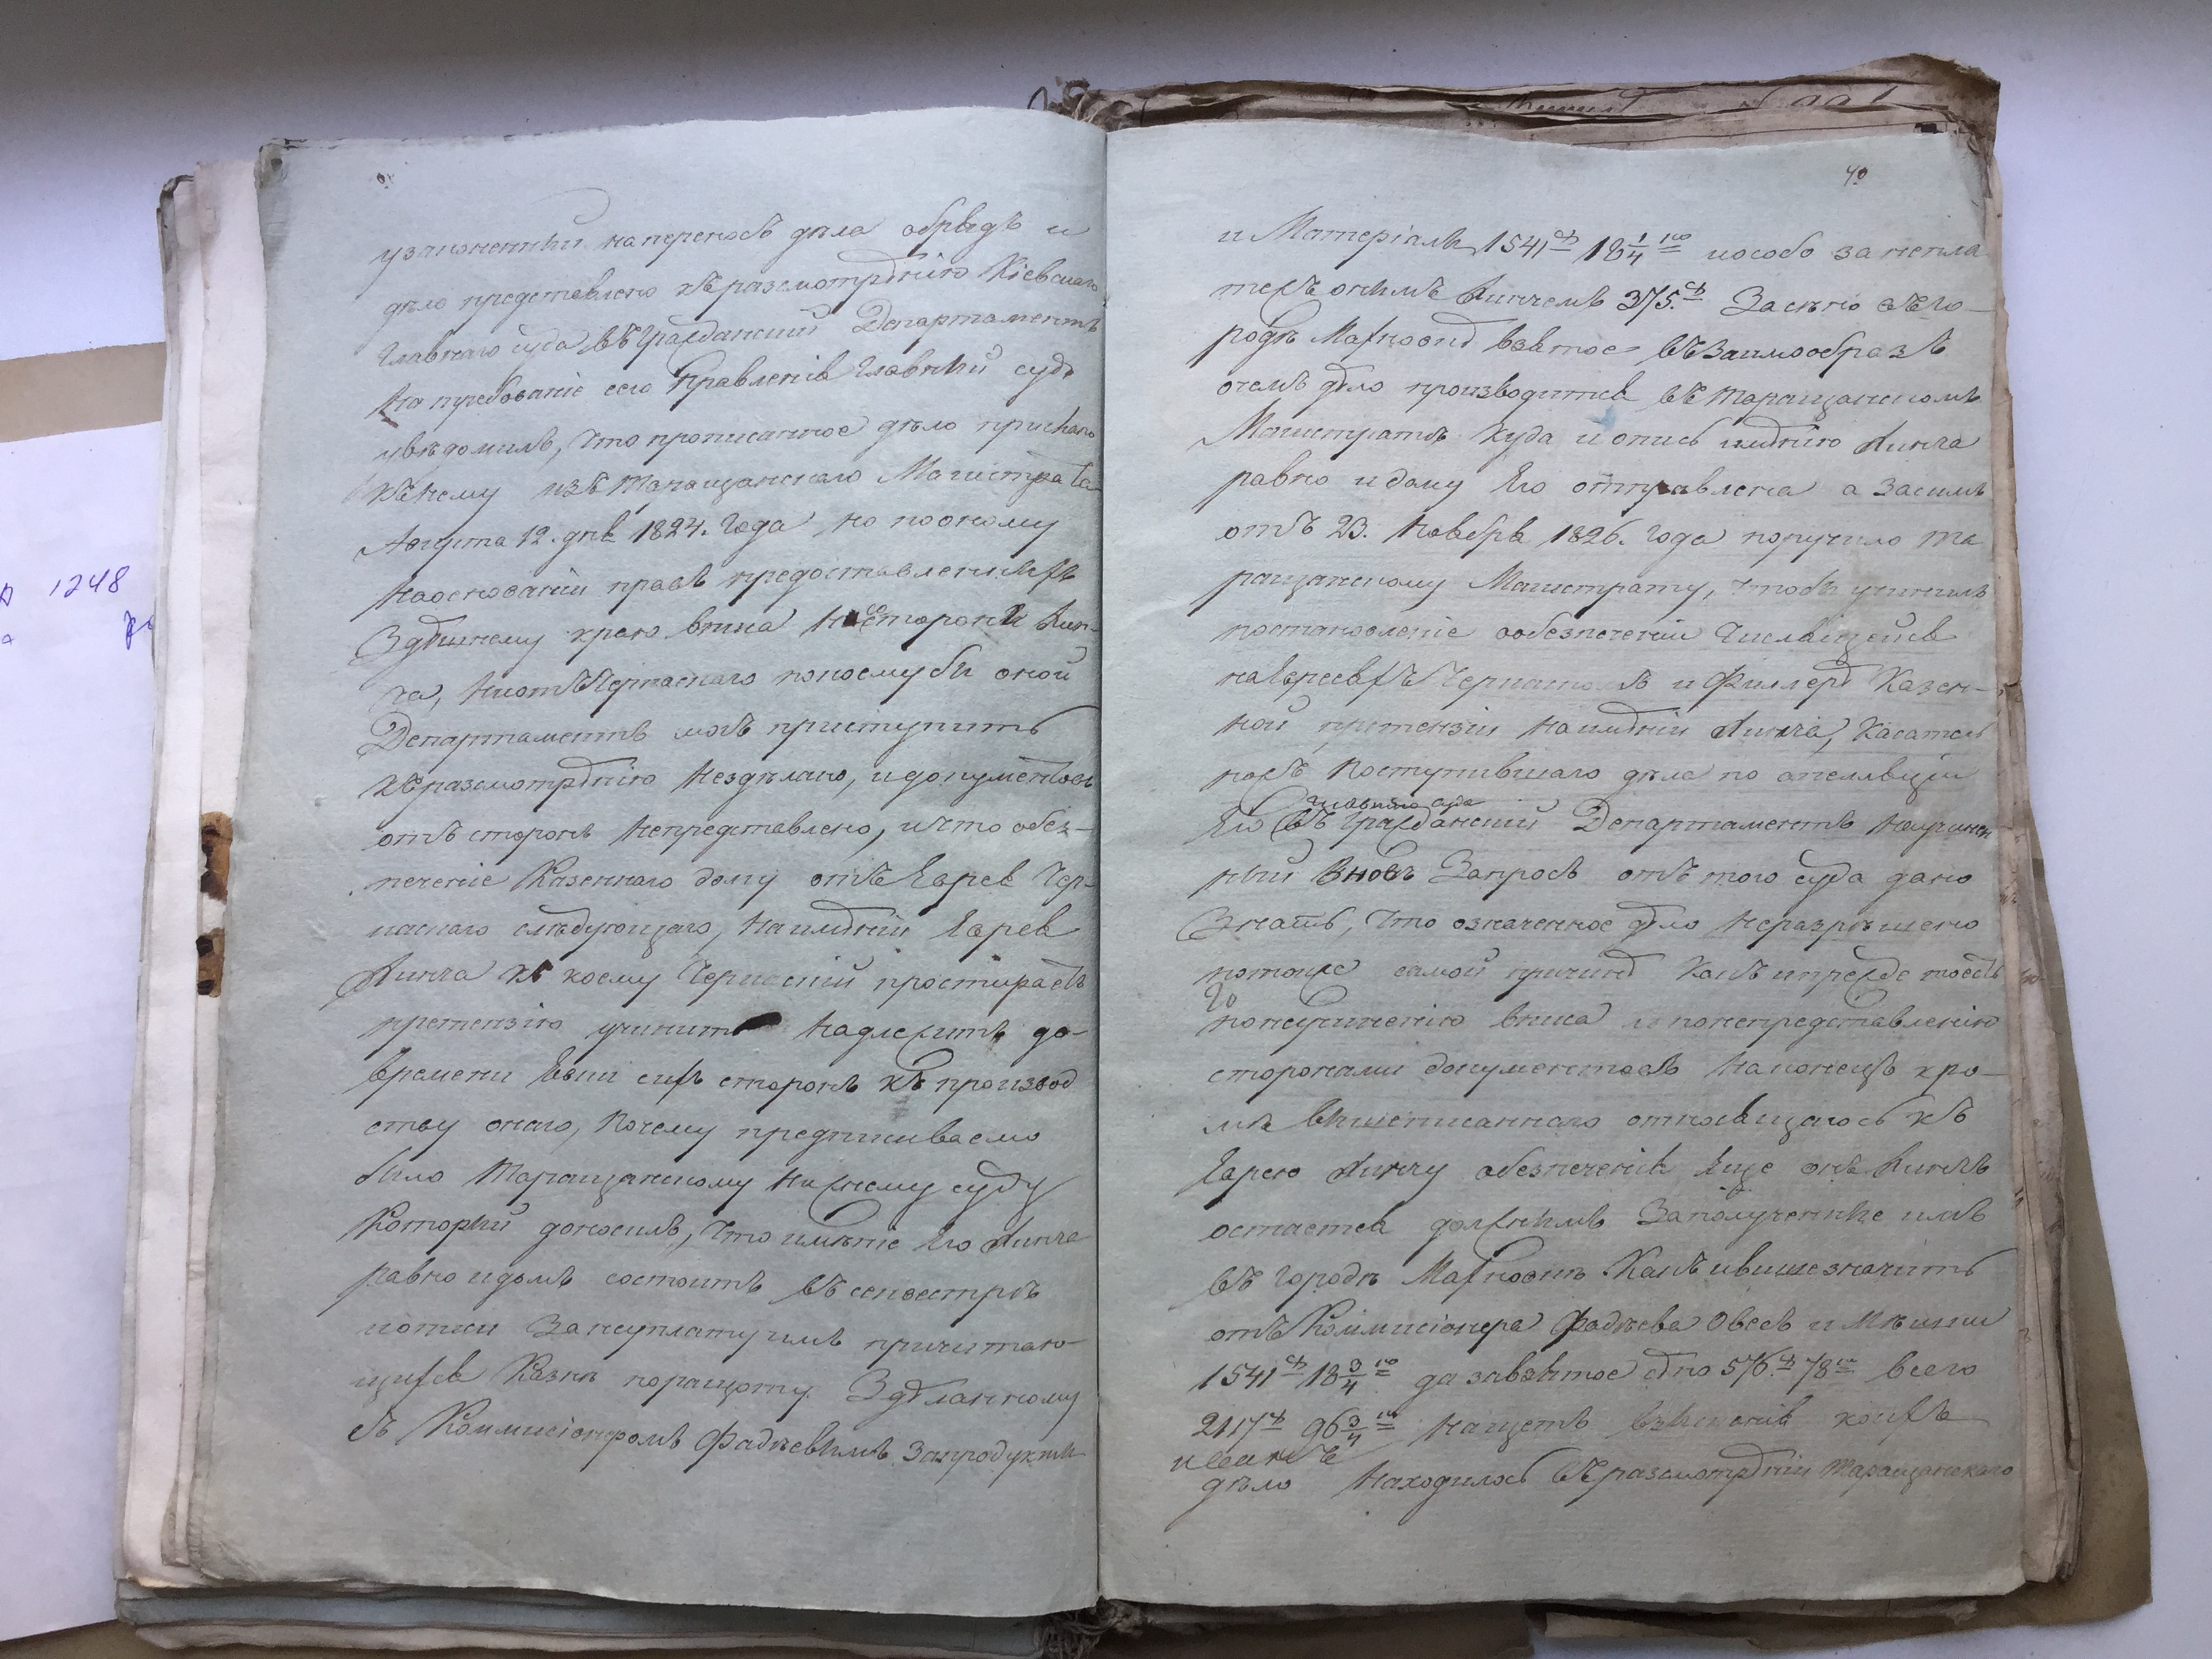 узаконенный на переносъ дѣла обрядъ и
дѣло представлено къ разсмотрѣнію Кіевскаго
Главнаго суда въ Гражданскій Департаментъ
На требованіе сего Правленія Главный судъ
увѣдомилъ, что прописанное дѣло прислано
къ нему изъ Таращанскаго Магистрата
Августа 12. дня 1824. года, но по оному
на основаніи правъ предоставленныхъ
Здѣшнему краю вписа ни со стороны Лин-
ча, ни отъ Черкаскаго по коему бы оной
Департаментъ могъ приступить
къ разсмотрѣнію нездѣлано, и документовъ
отъ сторонъ непредставлено, и что обез-
печеніе Казеннаго долгу отъ Еврея Чер-
каскаго слѣдующаго, на имѣніи Еврея
Линча къ коему Черкаскій простираетъ
претензію учинить надлежитъ до-
времени явки сихъ сторонъ къ производ
ству онаго, почему предписываемо
было Таращанскому Нижнему суду
который доносилъ, что имѣніе его Линча
равно и домъ состоитъ въ секвестрѣ
и описи За неуплату имъ причитаю-
щихся Казнѣ по ращоту Здѣланному
съ Коммисіонеромъ Фадѣевымъ За продукты
1248
40
и Матеріалы 1541 18 1/4 и особо за непла
тежъ онымъ Линчемъ 375. За сѣно въ го-
родѣ Махновкѣ взятое въ Заимообразъ
о чемъ дѣло производится въ Таращанскомъ
Магистратѣ куда и опись имѣнію Линча
равно и дому Его отправлена а Засимъ
отъ 23. Ноября 1826. года поручило Та
ращанскому Магистрату, чтобъ учинилъ
постановленіе о обезпеченіи числящейся
на Евреяхъ Черкаскомъ и Филлерѣ Казен-
ной притензіи на имѣніи Линча, Касатель
но жъ поступившаго дѣла по апелляціи
Главнаго суда
Его въ Гражданскій Департаментъ на учинен
ный вновь Запросъ отъ того суда дано
Знать, что означенное дѣло неразрѣшено
потой же самой причинѣ какъ и прежде тоесть
по неучиненію вписа и по непредставленію
сторонами документовъ наконецъ кро-
мѣ вышеписаннаго относящагося къ
Еврею Линчу обезпеченія Еще онъ Линчъ
остается должнымъ За полученные имъ
въ городѣ Махновкѣ Какъ и выше значитъ
отъ Коммисіонера Фадѣева Овесъ и Мѣшки
1541 18 3/4 да за взятое сѣно 576. 78 всего
2117 96 3/4 на щетъ взысканія коихъ
дѣло находилось въ разсмотрѣніи Таращанскаго